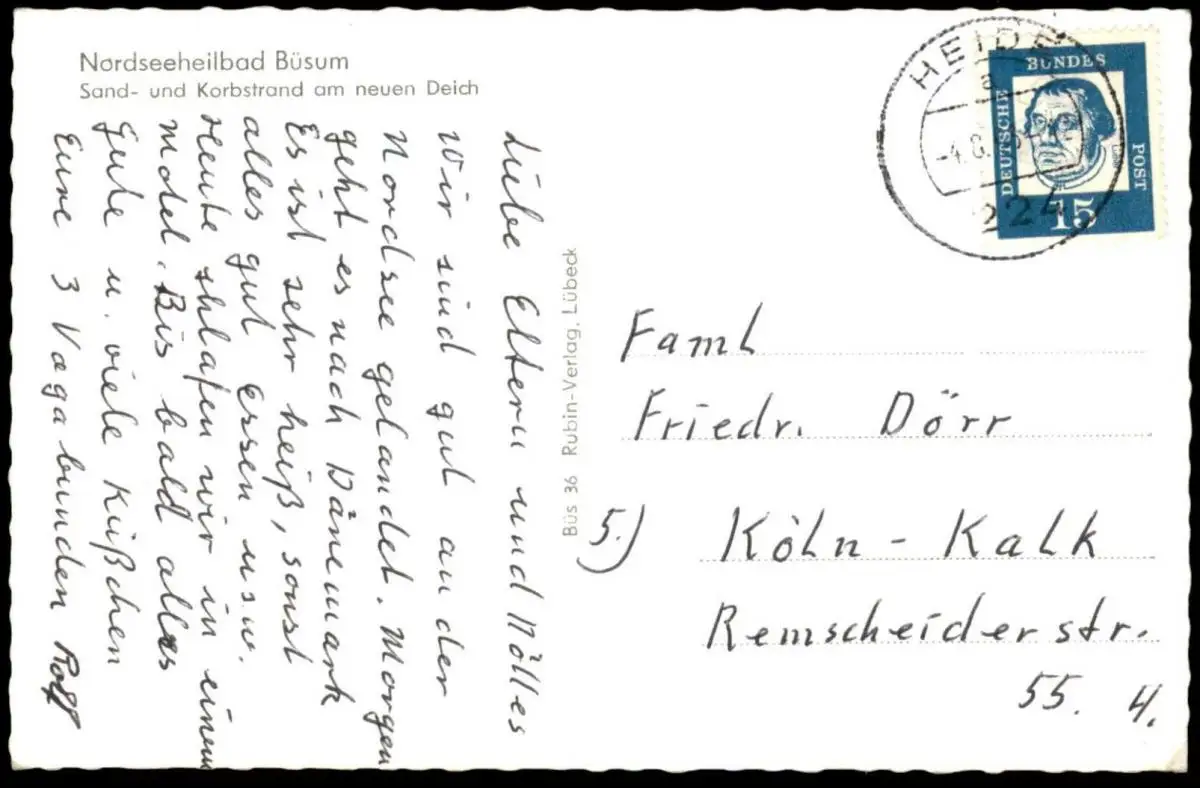 Nordseeheilbad Büsum
Sand- und Korbstrand am neuen Deich
Liebe Eltern und Nölles
wir sind gut an der
Nordsee gelandet. Morgen
geht es nach Dänemark
Es ist sehr heiß, sonst
alles gut essen usw.
Heute shlafen wir in einem
Motel. Bis bald alles
Gute u. viele Küßchen
Eure 3 Vagabunden Rolf
Büs 36 Rubin-Verlag, Lübeck
HEIDE
a
-4.8.
224
DEUTSCHE
BUNDES
POST
15
Faml
Friedr. Dörr
5.) Köln - Kalk
Remscheiderstr.
55. 4.